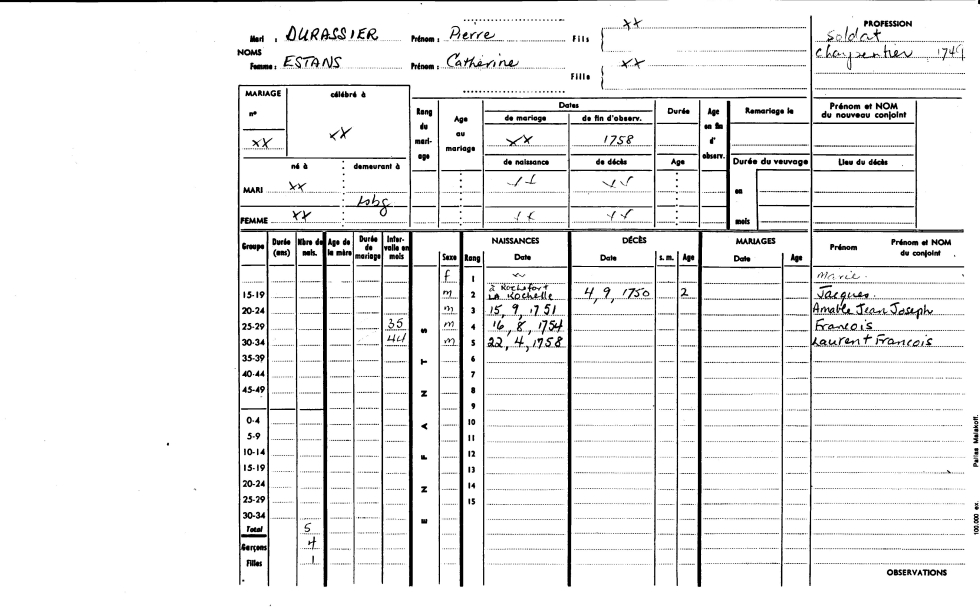 xx PROFESSION
Mari : DURASSIER Prénom : Pierre Fils Soldat
NOMS charpentier 1749
Femme : ESTANS Prénom : Catherine Fille xx
MARIAGE célébré à Rang du mariage Age au mariage Dates Durée Age en fin d'observ. Remariage le Prénom et NOM du nouveau conjoint
n° de mariage de fin d'observ.
xx xx xx 1758
né à demeurant à de naissance de décès Age Durée du veuvage Lieu du décès
MARI xx en
Lsbg
FEMME xx mois
Groupe Durée (ans) Nbre de nais. Age de la mère Durée de mariage Intervalle en mois ENFANTS Sexe Rang NAISSANCES Date DÉCÈS Date s. m. Age MARIAGES Date Age Prénom Prénom et NOM du conjoint
f 1 Marie
15-19 m 2 à Rochefort LA Rochelle 4, 9, 1750 2 Jacques
20-24 m 3 15, 9, 1751 Amable Jean Joseph
25-29 35 m 4 16, 8, 1754 Francois
30-34 44 m 5 22, 4, 1758 Laurent Francois
35-39 6
40-44 7
45-49 8
9
0-4 10
5-9 11
10-14 12
15-19 13
20-24 14
25-29 15
30-34
Total 5
Garçons 4
Filles 1
OBSERVATIONS
100.000 ex. Pairies Malakoff.